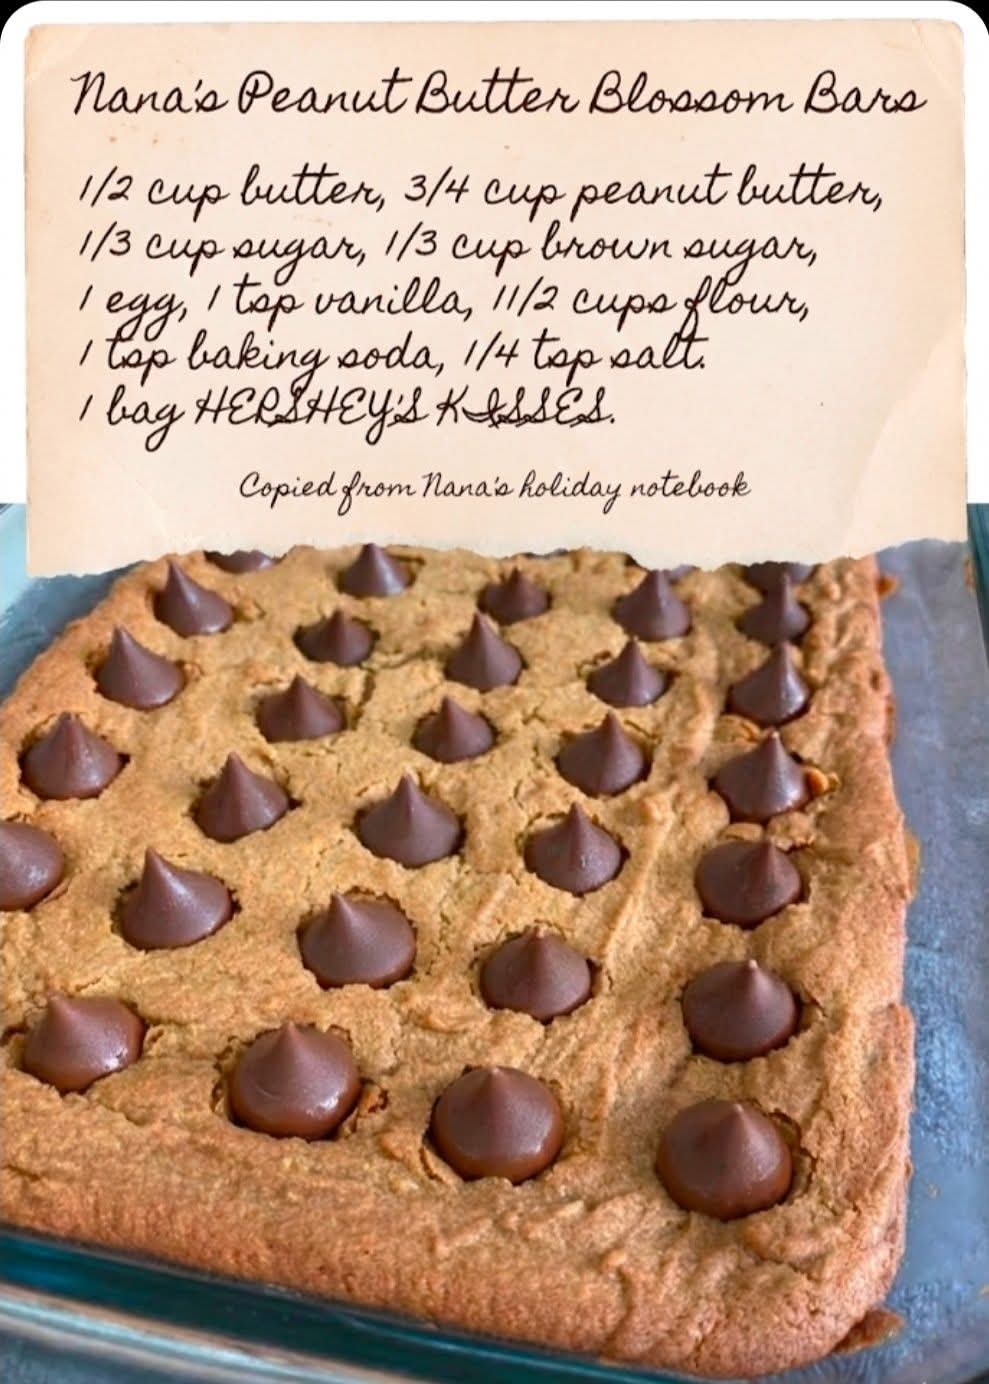 Nana's Peanut Butter Blossom Bars
1/2 cup butter, 3/4 cup peanut butter,
1/3 cup sugar, 1/3 cup brown sugar,
1 egg, 1 tsp vanilla, 11/2 cups flour,
1 tsp baking soda, 1/4 tsp salt.
1 bag HERSHEY'S KISSES.
Copied from Nana's holiday notebook